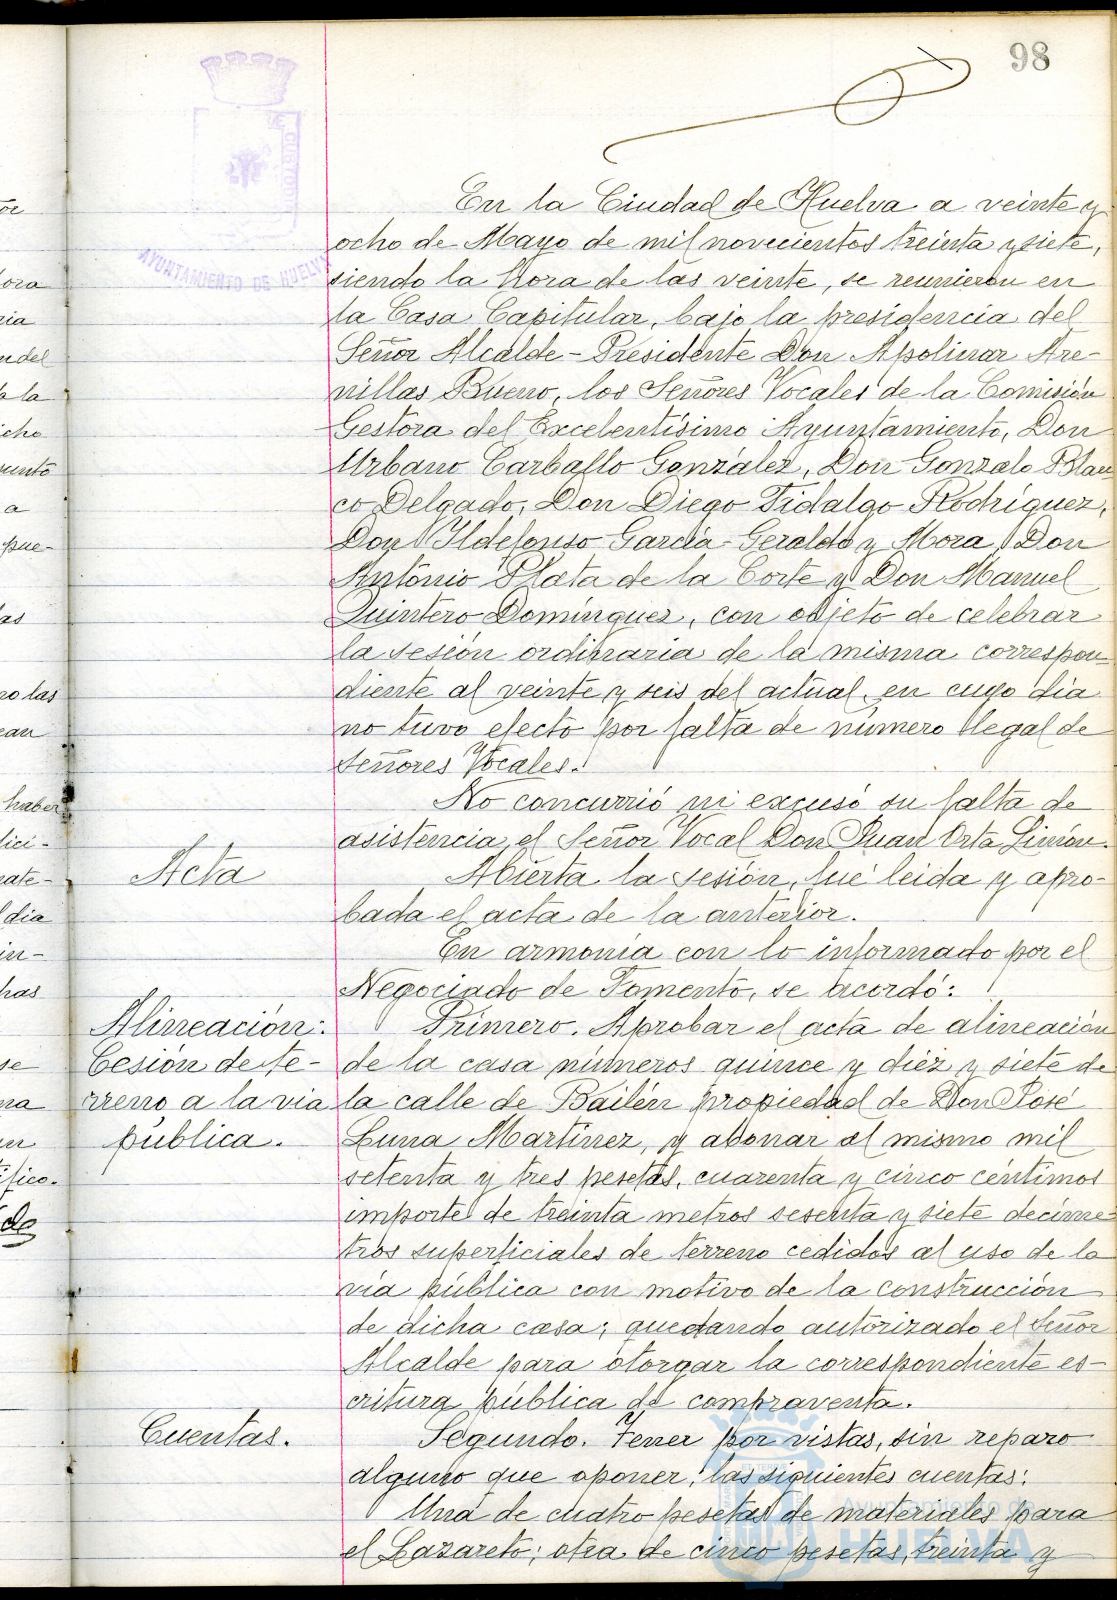 98
AYUNTAMIENTO DE HUELVA
En la Ciudad de Huelva a veinte y
ocho de Mayo de mil novecientos treinta y siete,
siendo la hora de las veinte, se reunieron en
la Casa Capitular, bajo la presidencia del
Señor Alcalde-Presidente Don Apolinar Are-
nillas Bueno, los Señores Vocales de la Comisión
Gestora del Excelentísimo Ayuntamiento, Don
Urbano Carballo González, Don Gonzalo Blan-
co Delgado, Don Diego Fidalgo Rodríguez,
Don Ildefonso García-Geraldo y Mora, Don
Antonio Plata de la Corte y Don Manuel
Quintero Domínguez, con objeto de celebrar
la sesión ordinaria de la misma correspon-
diente al veinte y seis del actual, en cuyo día
no tuvo efecto por falta de número legal de
Señores Vocales.
No concurrió ni excusó su falta de
asistencia, el Señor Vocal Don Juan Orta Limón.
Acta
Abierta la sesión, fué leida y apro-
bada el acta de la anterior.
En armonía con lo informado por el
Negociado de Fomento, se acordó:
Alineación:
Cesión de te-
rreno a la via
pública.
Primero. Aprobar el acta de alineación
de la casa números quince y diez y siete de
la calle de Bailén propiedad de Don José
Luna Martínez, y abonar al mismo mil
setenta y tres pesetas, cuarenta y cinco céntimos
importe de treinta metros sesenta y siete decíme-
tros superficiales de terreno cedidos al uso de la
vía pública con motivo de la construcción
de dicha casa; quedando autorizado el Señor
Alcalde para otorgar la correspondiente es-
critura pública de compraventa.
Cuentas.
Segundo. Tener por vistas, sin reparo
alguno que oponer, las siguientes cuentas:
Una de cuatro pesetas de materiales para
el Lazareto; otra de cinco pesetas, treinta y
Ayuntamiento de
HUELVA